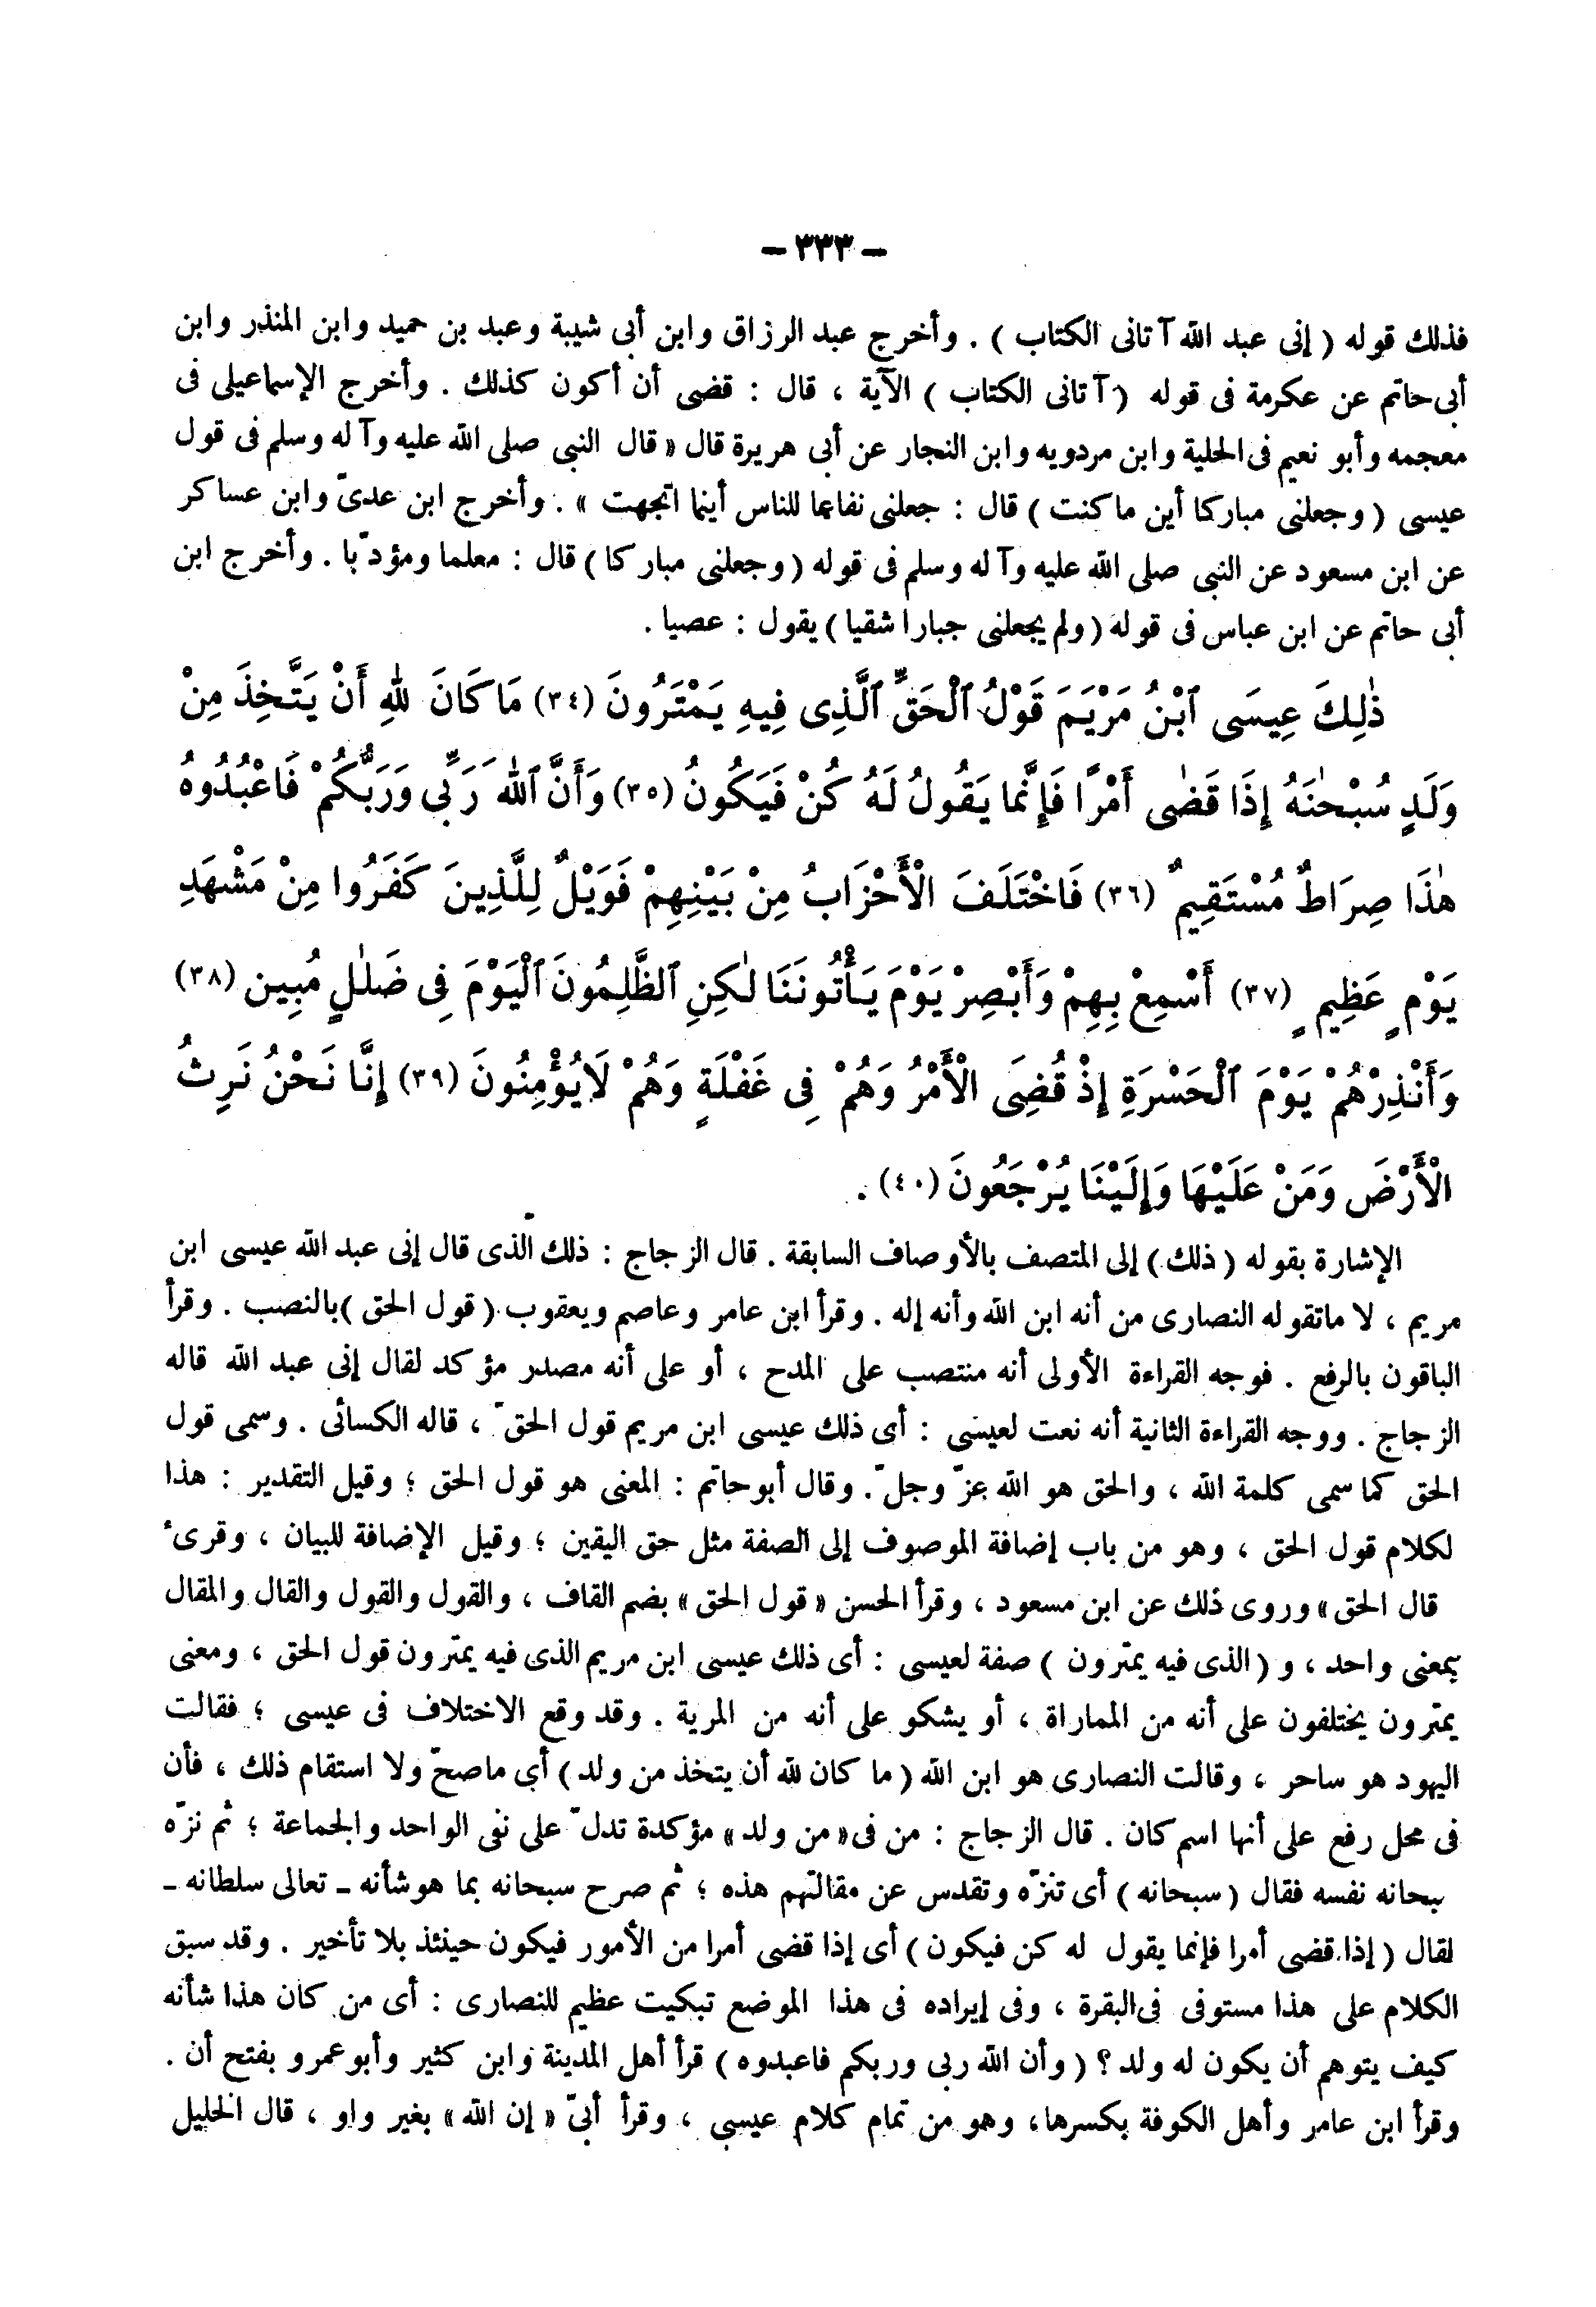 – ٣٣٣ –
فذلك قوله ( إنى عبد الله آتانى الكتاب ) . وأخرج عبد الرزاق وابن أبى شيبة وعبد بن حميد وابن المنذر وابن
أبى حاتم عن عكرمة فى قوله ( آتانى الكتاب ) الآية ، قال : قضى أن أكون كذلك . وأخرج الإسماعيلى فى
معجمه وأبو نعيم فى الحلية وابن مردويه وابن النجار عن أبى هريرة قال « قال النبى صلى الله عليه وآله وسلم فى قول
عيسى ( وجعلنى مباركا أين ما كنت ) قال : جعلنى نفاعا للناس أينما اتجهت » . وأخرج ابن عدىّ وابن عساكر
عن ابن مسعود عن النبى صلى الله عليه وآله وسلم فى قوله ( وجعلنى مباركا ) قال : معلما ومؤدّبا . وأخرج ابن
أبى حاتم عن ابن عباس فى قوله ( ولم يجعلنى جبارا شقيا ) يقول : عصيا .
ذٰلِكَ عِيسَى ٱبْنُ مَرْيَمَ قَوْلُ ٱلْحَقِّ ٱلَّذِى فِيهِ يَمْتَرُونَ (٣٤) مَا كَانَ لِلهِ أَنْ يَتَّخِذَ مِنْ
وَلَدٍ سُبْحٰنَهُ إِذَا قَضٰى أَمْرًا فَإِنَّمَا يَقُولُ لَهُ كُنْ فَيَكُونُ (٣٥) وَأَنَّ ٱللهَ رَبِّى وَرَبُّكُمْ فَاعْبُدُوهُ
هٰذَا صِرَاطٌ مُسْتَقِيمٌ (٣٦) فَاخْتَلَفَ الْأَحْزَابُ مِنْ بَيْنِهِمْ فَوَيْلٌ لِلَّذِينَ كَفَرُوا مِنْ مَشْهَدِ
يَوْمٍ عَظِيمٍ (٣٧) أَسْمِعْ بِهِمْ وَأَبْصِرْ يَوْمَ يَأْتُونَنَا لٰكِنِ ٱلظَّلِمُونَ ٱلْيَوْمَ فِى ضَلٰلٍ مُبِينٍ (٣٨)
وَأَنْذِرْهُمْ يَوْمَ ٱلْحَسْرَةِ إِذْ قُضِىَ الْأَمْرُ وَهُمْ فِى غَفْلَةٍ وَهُمْ لَا يُؤْمِنُونَ (٣٩) إِنَّا نَحْنُ نَرِثُ
الْأَرْضَ وَمَنْ عَلَيْهَا وَإِلَيْنَا يُرْجَعُونَ (٤٠) .
الإشارة بقوله ( ذلك ) إلى المتصف بالأوصاف السابقة . قال الزجاج : ذلك الّذى قال إنى عبد الله عيسى ابن
مريم ، لا ماتقوله النصارى من أنه ابن الله وأنه إله . وقرأ ابن عامر وعاصم ويعقوب ( قول الحق ) بالنصب . وقرأ
الباقون بالرفع . فوجه القراءة الأولى أنه منتصب على المدح ، أو على أنه مصدر مؤكد لقال إنى عبد الله قاله
الزجاج . ووجه القراءة الثانية أنه نعت لعيسى : أى ذلك عيسى ابن مريم قول الحقّ ، قاله الكسائى . وسمى قول
الحق كما سمى كلمة الله ، والحق هو الله عزّ وجلّ . وقال أبو حاتم : المعنى هو قول الحق ؛ وقيل التقدير : هذا
لكلام قول الحق ، وهو من باب إضافة الموصوف إلى الصفة مثل حق اليقين ؛ وقيل الإضافة للبيان ، وقرىء
قال الحق » وروى ذلك عن ابن مسعود ، وقرأ الحسن « قول الحق » بضم القاف ، والقول والقول والقال والمقال
بمعنى واحد ، و ( الذى فيه يمترون ) صفة لعيسى : أى ذلك عيسى ابن مريم الذى فيه يمترون قول الحق ، ومعنى
يمترون يختلفون على أنه من المماراة ، أو يشكو على أنه من المرية . وقد وقع الاختلاف فى عيسى ؛ فقالت
اليهود هو ساحر ، وقالت النصارى هو ابن الله ( ما كان لله أن يتخذ من ولد ) أى ماصحّ ولا استقام ذلك ، فأن
فى محل رفع على أنها اسم كان . قال الزجاج : من فى « من ولد » مؤكدة تدلّ على نفى الواحد والجماعة ؛ ثم نزّه
بحانه نفسه فقال ( سبحانه ) أى تنزّه وتقدس عن مقالتهم هذه ؛ ثم صرح سبحانه بما هو شأنه ـ تعالى سلطانه ـ
لقال ( إذا قضى أمرا فإنما يقول له كن فيكون ) أى إذا قضى أمرا من الأمور فيكون حينئذ بلا تأخير . وقد سبق
الكلام على هذا مستوفى فى البقرة ، وفى إيراده فى هذا الموضع تبكيت عظيم للنصارى : أى من كان هذا شأنه
كيف يتوهم أن يكون له ولد ؟ ( وأن الله ربى وربكم فاعبدوه ) قرأ أهل المدينة وابن كثير وأبو عمرو بفتح أن .
وقرأ ابن عامر وأهل الكوفة بكسرها ، وهو من تمام كلام عيسى ، وقرأ أبىّ « إن الله » بغير واو ، قال الخليل